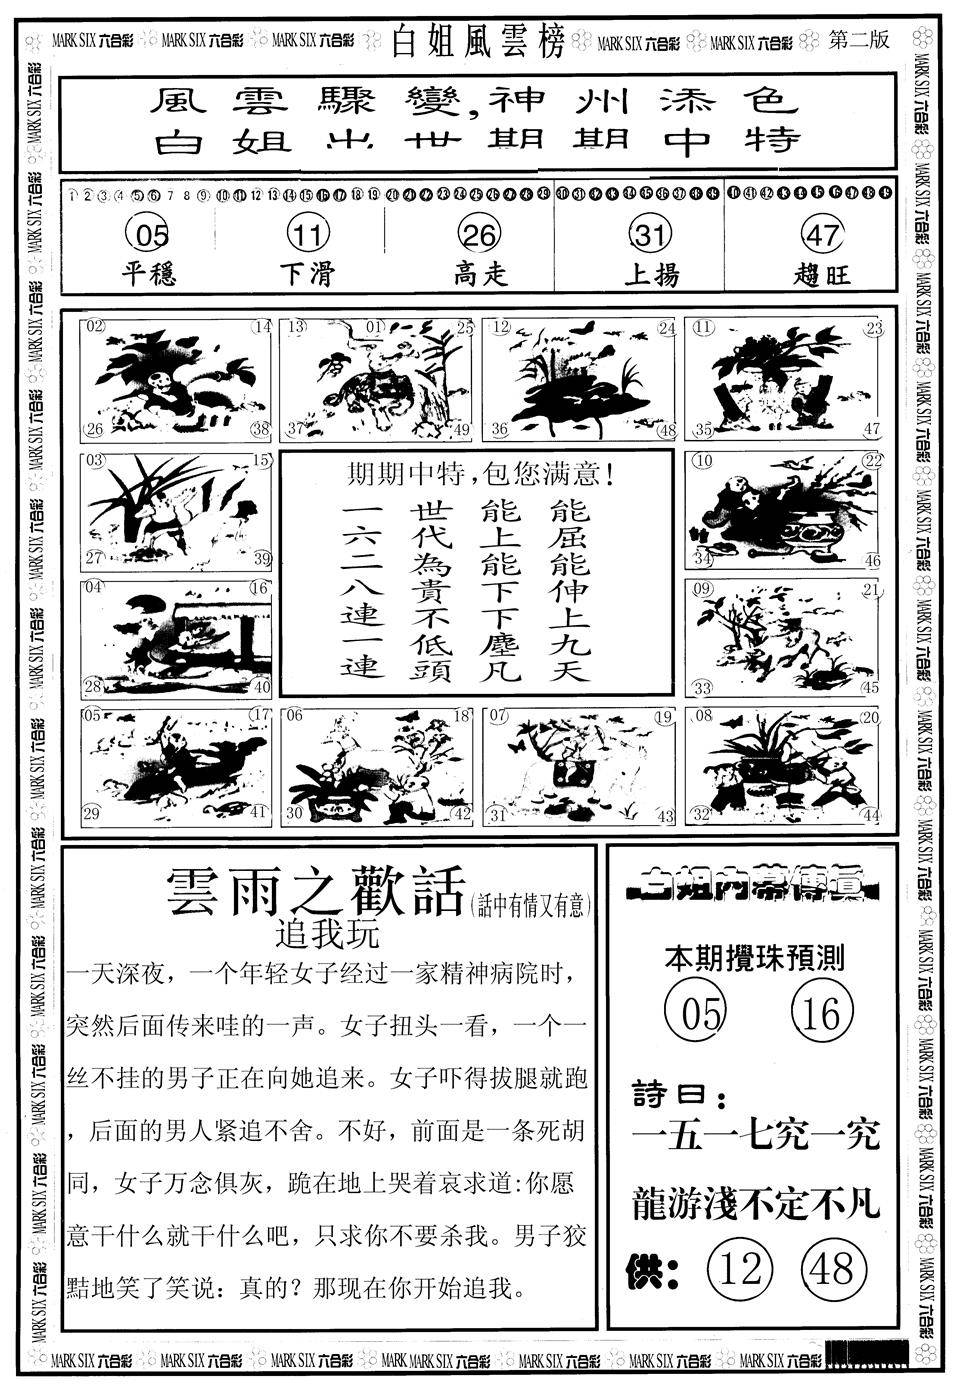 MARK SIX 六合彩 MARK SIX 六合彩 MARK SIX 六合彩 白姐風雲榜 MARK SIX 六合彩 MARK SIX 六合彩 第二版
風雲驟變,神州添色
白姐出世期期中特
1 2 3 4 5 6 7 8 9 10 11 12 13 14 15 16 17 18 19 20 21 22 23 24 25 26 27 28 29 30 31 32 33 34 35 36 37 38 39 40 41 42 43 44 45 46 47 48 49
05 11 26 31 47
平穩 下滑 高走 上揚 趨旺
02 14 13 01 25 12 24 11 23
26 38 37 49 36 48 35 47
03 15
27 39
04 16
28 40
期期中特,包您满意!
能屈能伸上九天
能上能下下塵凡
世代為貴不低頭
一六二八連一連
10 22
34 46
09 21
33 45
05 17 06 18 07 19 08 20
29 41 30 42 31 43 32 44
雲雨之歡話(話中有情又有意)
追我玩
一天深夜，一个年轻女子经过一家精神病院时，
突然后面传来哇的一声。女子扭头一看，一个一
丝不挂的男子正在向她追来。女子吓得拔腿就跑
，后面的男人紧追不舍。不好，前面是一条死胡
同，女子万念俱灰，跪在地上哭着哀求道:你愿
意干什么就干什么吧，只求你不要杀我。男子狡
黠地笑了笑说：真的？那现在你开始追我。
白姐内幕傳真
本期攪珠預測
05 16
詩曰：
一五一七究一究
龍游淺不定不凡
供：12 48
MARK SIX 六合彩 MARK SIX 六合彩 MARK SIX 六合彩 MARK MARK SIX 六合彩 MARK SIX 六合彩 MARK SIX 六合彩 MARK SIX 六合彩